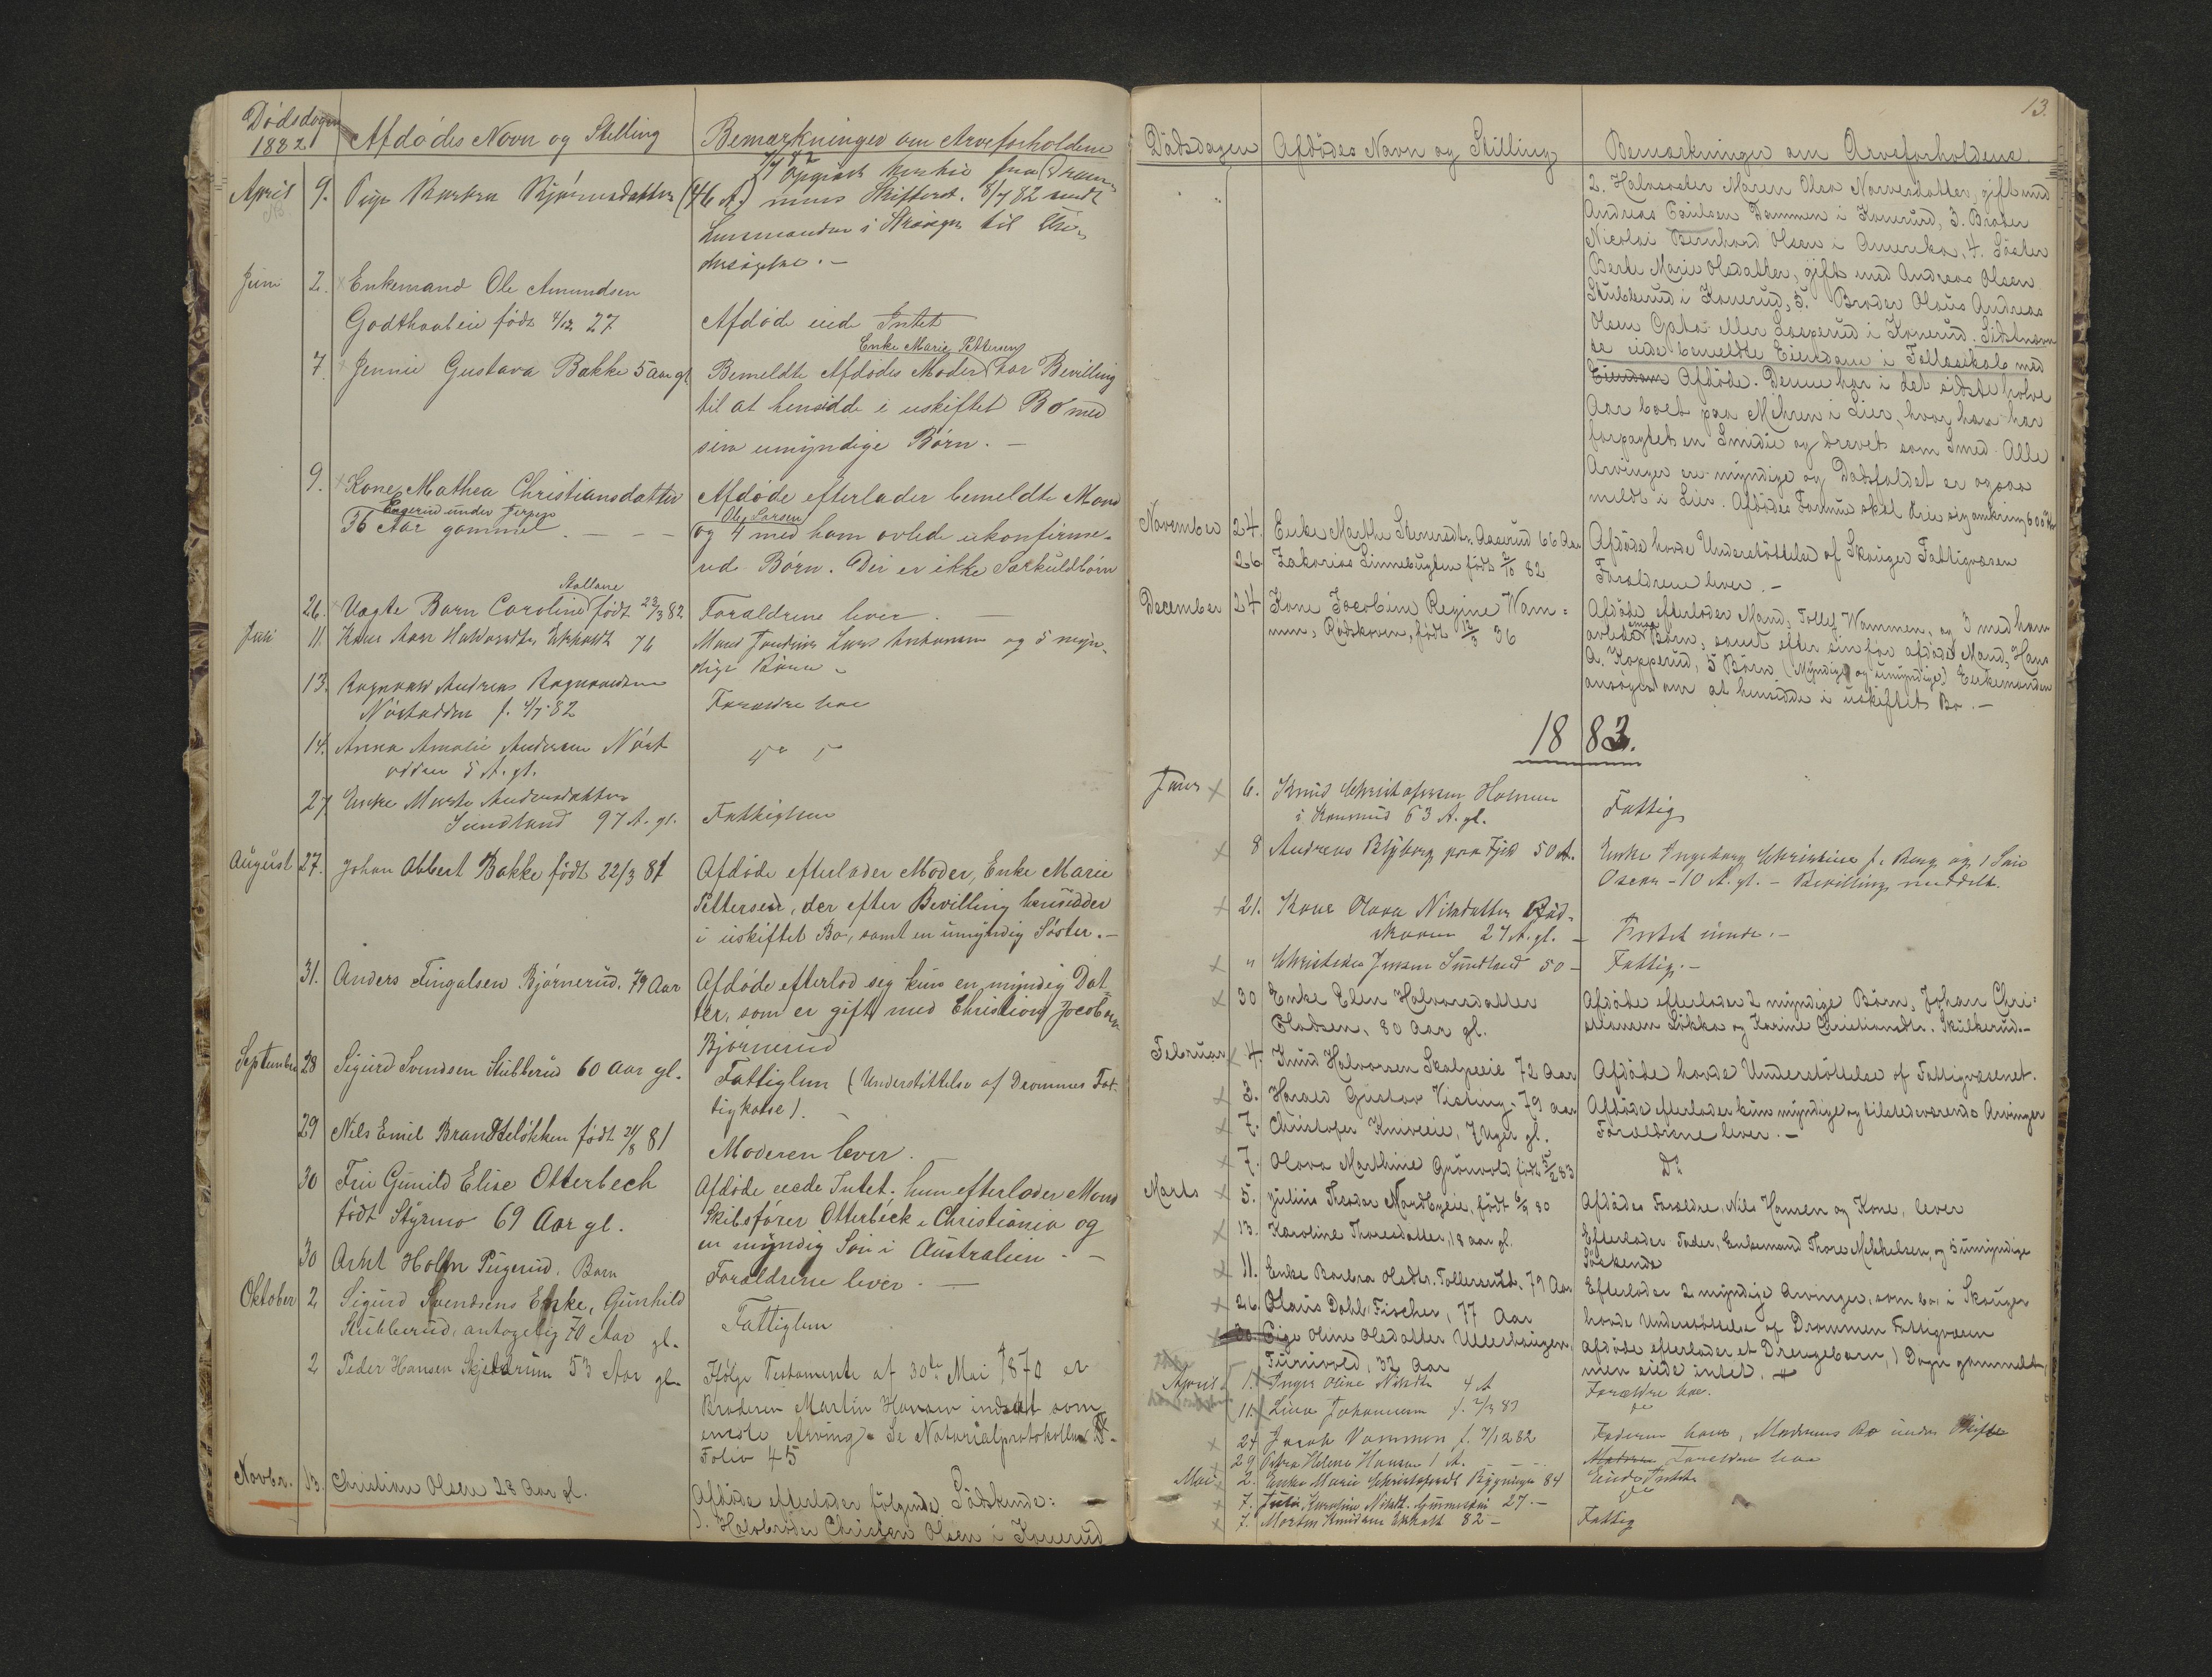 Dödsdagen
1882
Afdödes Navn og Stilling
Bemærkninger om Arveforholdene
April 9. Pige Barbra Björnsdatter (46 A.)
7/7 82 Opgivet herhid fra Dram-
mens Skifteret. 8/7 82 sendt
Lensmanden i Skouger til Un-
dersögelse.-
Juni 2. x Enkemand Ole Amundsen
Godthaabeie födt 4/12 27
Afdöde eiede Intet
7. x Jennie Gustava Bakke 5 Aar gl
Enke Marie Pettersen
Bemeldte Afdödes Moder har Bevilling
til at hensidde i uskiftet Bo med
sine umyndige Börn.-
9. x Kone Mathea Christiansdatter
Engerud under
36 Aar gammel. - - -
Afdöde efterlader bemeldte Mand
Ole Larsen
og 4 med ham avlede ukonfirme-
rede Börn. Der er ikke Særkuldbörn
26. x Uægte Barn Caroline Stallane födt 23/3 82
Forældrene lever. -
Juli 11. Kone Halvorsdtr 76
Mand Lars Antonsen og 5 myn-
dige Börn -
13. Ragnvald Andreas Ragnvaldsen
Nöstodden f. 4/7 82
Forældre har
14. Anna Amalie Andersen Nöst
odden 5 A. gl.
do
27. Enke Marte Andersdatter
Sundland 97 A. gl.
Fattiglem
August 27. Johan Albert Bakke födt 22/3 81
Afdöde efterlader Moder, Enke Marie
Pettersen, der efter Bevilling hensidder
i uskiftet Bo, samt en umyndig Söster.-
31. Anders Fingalsen Björnerud. 79 Aar
Afdöde efterlod sig kun en myndig Dat-
ter, som er gift med Christian Jocobsen
Björnerud
September 28 Sigurd Svendsen Stubberud 60 Aar gl.
Fattiglem (Understöttelse af Drammens Fat-
tigkasse). -
29 Nils Emil Brandtelökken födt 24/8 81
Moderen lever.
30 Fru Gunild Elise Otterbech
födt Styrmo 69 Aar gl.
Afdöde eiede Intet. hun efterlader Mand
Skibsförer Otterbeck i Christiania og
en myndig Sön i Australien. -
30 Arnt Holm Pugerud, Barn
Forældrene lever. -
Oktober 2 Sigurd Svendsens Enke, Gunhild
Stubberud, antagelig 70 Aar gl.
Fattiglem
2 Peder Hansen Skjeldrum 53 Aar gl.
Ifölge Testamente af 30te Mai 1870 er
Broderen Martin Hansen indsat som
eneste Arving. Se Notarialprotokollen
Folio 45
Novbr. 13. Christian Olsen 28 Aar gl.
Afdöde efterlader fölgende Södskende:
1. Halvbroder Christen Olsen i Konerud
13.
Dödsdagen
Afdödes Navn og Stilling
Bemærkninger om Arveforholdene.
2. Halvsöster Maren Olea Narvesdatter, gift med
Andreas Paulsen Dammen i Konerud, 3. Broder
Nicolai Bernhard Olsen i Amerika, 4. Söster
Berte Marie Olsdatter, gift med Andreas Olsen
Stubberud i Konerud, 5. Broder Olaus Andreas
Olsen Gata eller Lasserud i Konerud. Sidstnævn
te eiede bemeldte Eiendom i Fællesskab med
Eiendom Afdöde. Denne har i det sidste halve
Aar boet paa Mehren i Lier, hvor han har
forpagtet en Smidie og drevet som Smed. Alle
Arvinger er myndige og Dödsfaldet er ogsaa
meldt i Lier. Afdödes Formue skal dreie sig omkring 600 Kr
November 24. Enke Marthe Stenersdtr. Aaserud 66 Aar
Afdöde havde Understöttelse af Skouger Fattigvæsen
26 Zakarias Linnebugten födt 2/10 82
Forældrene lever.-
December 24 Kone Jacobine Regine Wam-
men, Rödskoven, födt 12/3 36
Afdöde efterlader Mand, Tollef Wammen, og 3 med ham
avlede Börn, samt efter sin för afdöde Mand, Hans
A. Kopperud, 5 Börn (Myndige og umyndige) Enkemanden
ansöger om at hensidde i uskiftet Bo.-
1883.
Januar x 6. Knud Christofersen Holmen
i Konnerud 63 A. gl.
Fattig
x 8 Andreas Blyberg paa Fjeld 50 A.
Enke Ingeborg Christine f. Berg og 1 Sön
Oscar - 10 A. gl. - Bevilling meddelt.
x 21. Kone Olava Nilsdatter Röd-
skoven 27 A. gl. -
Intet eiende.-
x " Christian Jensen Sundland 50 -
Fattig.-
x 30 Enke Elen Halvorsdatter
Pladsen, 80 Aar gl.
Afdöde efterlader 2 myndige Börn, Johan Chri-
stiansen Lökka og Karine Christiansdtr. Skulkerud.-
Februar x 4. Knud Halvorsen Skalpeeie 72 Aar
Afdöde havde Understöttelse af Fattigvæsenet.
x 3. Harald Gustav Visting, 79 aar
Afdöde efterlader kun myndige og tilstedeværende Arvinger
x 7. Christofer Kniveeie, 7 Uger gl.
Forældrene lever.-
x 7. Olava Marthine Grönvold födt 5/2 83
Do
Marts x 5. Julius Theodor Nordbyeie, födt 6/9 80
Afdödes Forældre, Nils Hansen og Kone, lever
x 13. Karoline Thoresdatter, 18 aar gl.
Efterlader Fader, Enkemand Thore Mikkelsen, og 5 umyndige
Söskende
x 11. Enke Barbra Olsdtr. Tollerud, 79 Aar
Efterlader 2 myndige Arvinger, som bo i Skouger
x 26. Olaus Dahl Fischer, 77 Aar
havde Understöttelse af Drammen Fattigvæsen
x 30. Pige Oline Olsdatter Ullershaugen,
Furuvold, 32 Aar
afdöde efterlader et Drengebarn, 1 Dage gammelt,
men eiede intet.
April 1. x Inger Oline Nilsdtr 4 A
Forældre har.
11. Lina Johannesen f. 2/3 83
do
x 24 Jacob Vammen f. 7/12 82
Faderen haves, Moderens Bo under Skifte
29 Petra Helene Hansen 1 A.
Moderen Forældre har
Mai x 2. Enke Marie Christophersdt. Bygningen 84
Eiede Intet.
x 7. Julie Karoline Nilsdt. 27.-
do
x 7. Morten Knudsen 82 -
Fattig